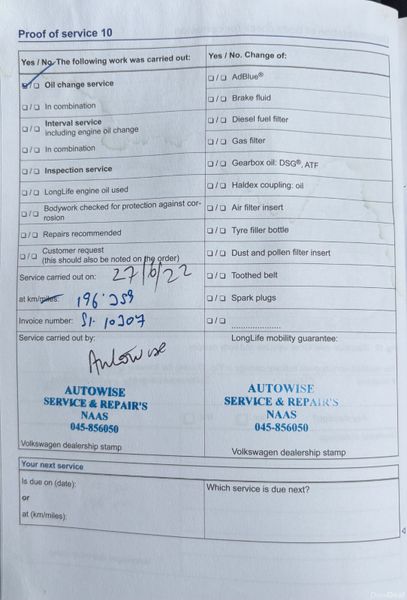 Proof of service 10
Yes / No. The following work was carried out:
☑/❑ Oil change service
❑/❑ In combination
❑/❑ Interval service
including engine oil change
❑/❑ In combination
❑/❑ Inspection service
❑/❑ LongLife engine oil used
❑/❑ Bodywork checked for protection against cor-
rosion
❑/❑ Repairs recommended
❑/❑ Customer request
(this should also be noted on the order)
Service carried out on: 27/6/22
at km/miles: 196'259
Invoice number: SI-10207
Service carried out by:
Autowise
AUTOWISE
SERVICE & REPAIR'S
NAAS
045-856050
Volkswagen dealership stamp
Yes / No. Change of:
❑/❑ AdBlue®
❑/❑ Brake fluid
❑/❑ Diesel fuel filter
❑/❑ Gas filter
❑/❑ Gearbox oil: DSG®, ATF
❑/❑ Haldex coupling: oil
❑/❑ Air filter insert
❑/❑ Tyre filler bottle
❑/❑ Dust and pollen filter insert
❑/❑ Toothed belt
❑/❑ Spark plugs
❑/❑ ......................
LongLife mobility guarantee:
AUTOWISE
SERVICE & REPAIR'S
NAAS
045-856050
Volkswagen dealership stamp
Your next service
Is due on (date):
or
at (km/miles):
Which service is due next?
4
DoneDeal